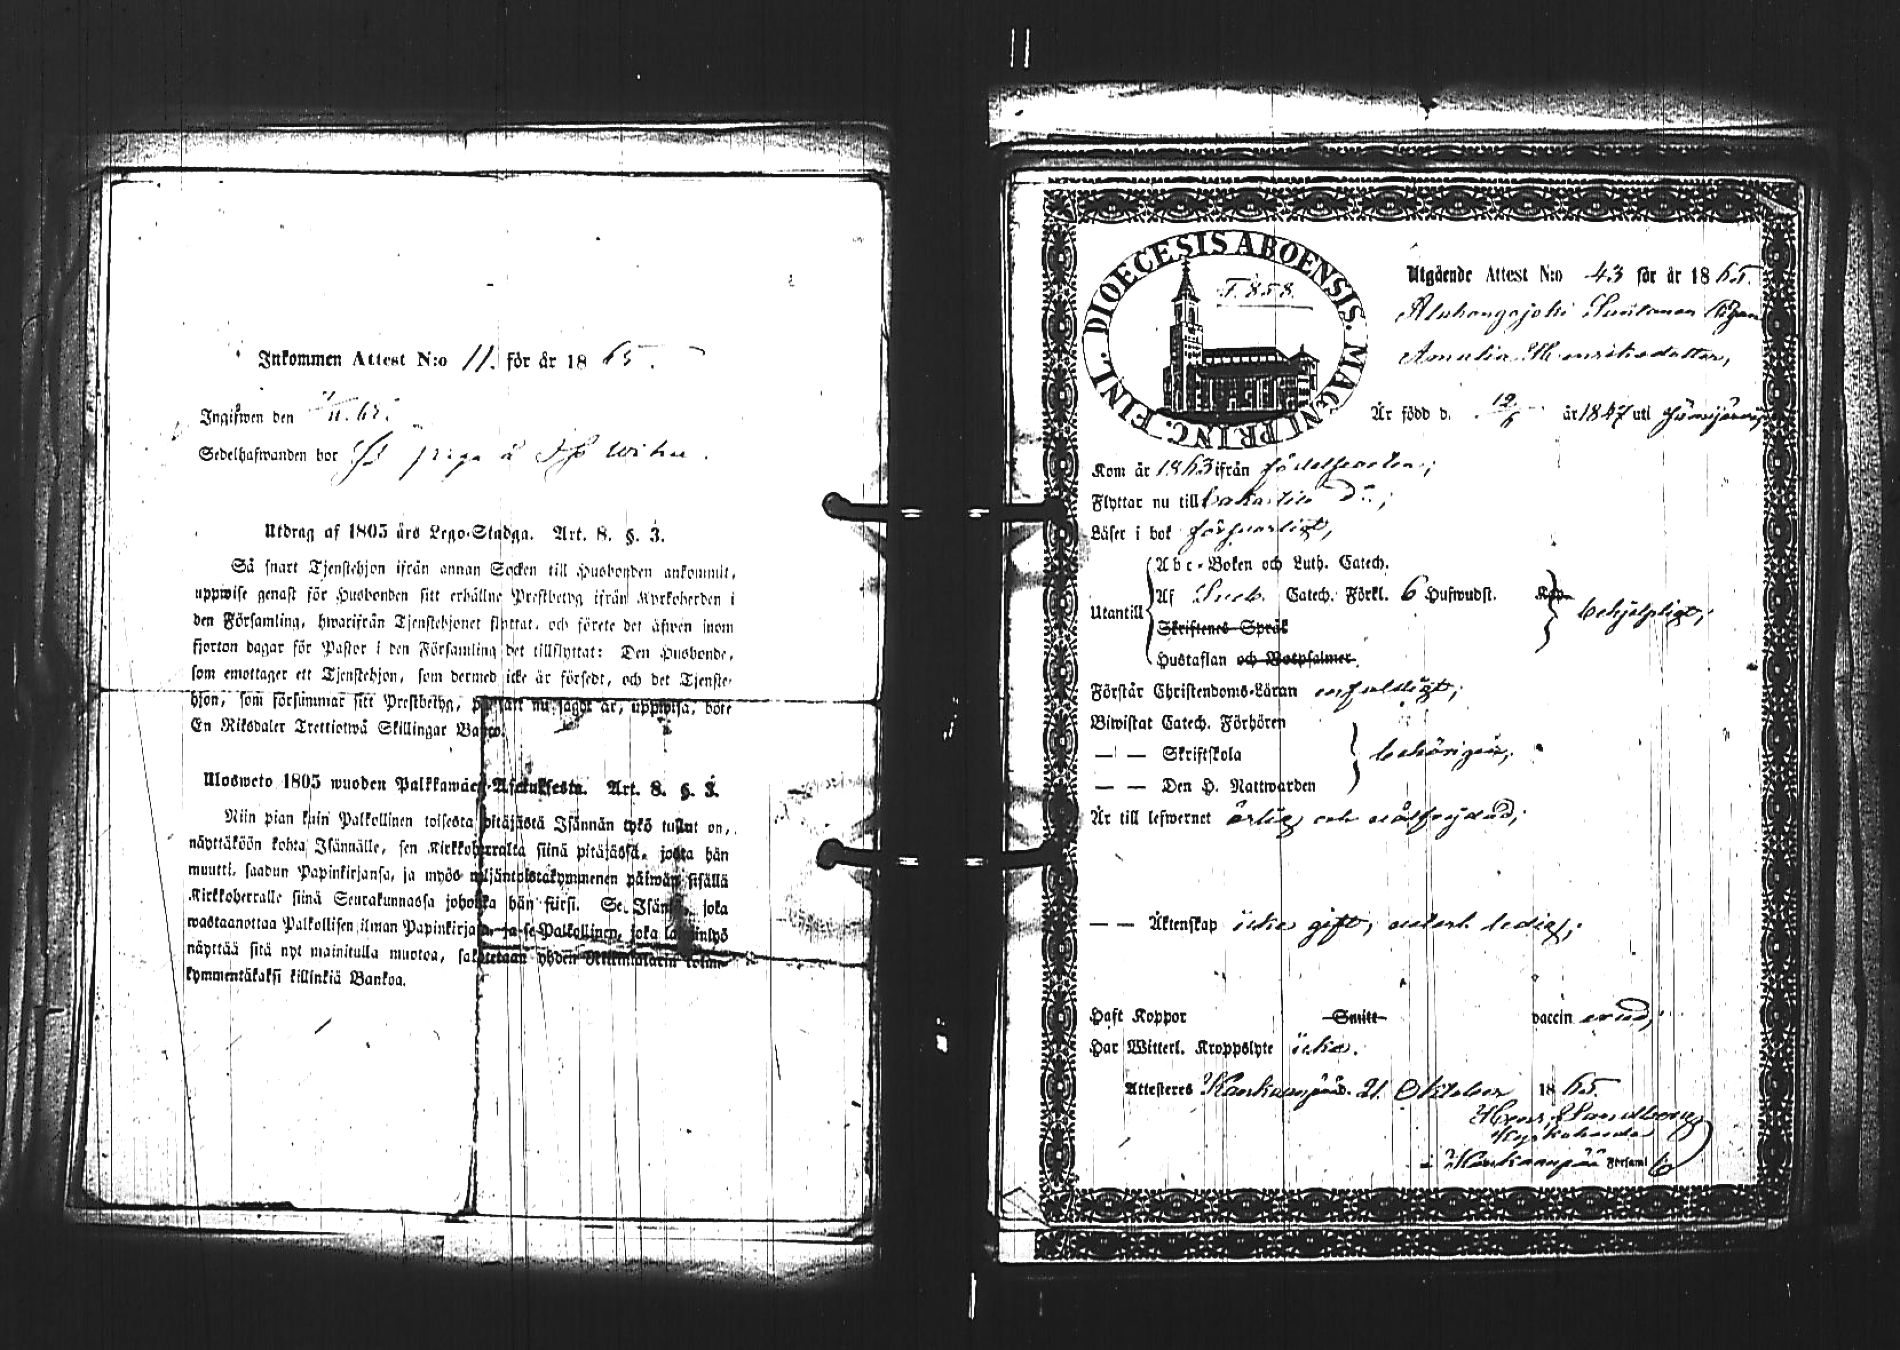 Inkommen Attest N:o 11. för år 1865.
Ingifwen den
Sedelhafwanden bor piga å
Utdrag af 1805 års Lego-Stadga. Art. 8. §. 3.
Så snart Tjenstehjon ifrån annan Socken till Husbonden ankommit,
uppwise genast för Husbonden sitt erhållne Prestbetyg ifrån Kyrkoherden i
den Församling, hwarifrån Tjenstehjonet flyttat, och förete det äfwen inom
fjorton dagar för Pastor i den Församling det tillflyttat: Den Husbonde,
som emottager ett Tjenstehjon, som dermed icke är försedt, och det Tjenste-
hjon, som försummar sitt Prestbetyg, på sätt nu sagdt är, uppwisa, böte
En Riksdaler Trettiotwå Skillingar Banco.
Ulosweto 1805 wuoden Palkkawäen-Asetuksesta. Art. 8. §. 3.
Niin pian kuin Palkollinen toisesta pitäjästä Isännän tykö tullut on,
näyttäköön kohta Isännälle, sen Kirkkoherralta siinä pitäjässä, josta hän
muutti, saadun Papinkirjansa, ja myös neljäntoistakymmenen päiwän sisällä
Kirkkoherralle siinä Seurakunnassa johonka hän siirsi. Se Isäntä, joka
wastaanottaa Palkollisen ilman Papinkirjata, ja se Palkollinen, joka laiminlyö
näyttää sitä nyt mainitulla muotoa, sakotetaan yhden Riikintalarin kolme-
kymmentäkaksi killinkiä Bankoa.
DIOECESIS ABOENSIS. MAGNI PRINC. FINL.
T. 858.
Utgående Attest N:o 43 för år 1865.
Pigan
Amalia Henriksdotter,
Är född d. 12/6 år 1847 uti Jämijärvi
Kom år 1863 ifrån födelseorten;
Flyttar nu till tillbaka
Läser i bok försvarligt,
Abc-Boken och Luth. Catech.
Utantill Af Sveb. Catech. Förkl. 6 Hufwudst. behjelpligt;
Skriftenes Språk
Hustaflan och Botpsalmer.
Förstår Christendoms-Läran enfaldigt;
Biwistat Catech. Förhören
— — Skriftskola behörigen;
— — Den H. Nattwarden
Är till lefwernet ärlig och välfrejdad;
— — Äktenskap icke gift, utan ledig;
Haft Koppor Smitt vaccin
Har Witterl. Kroppslyte icke.
Attesteras Kankaanpää 21. Oktober 1865.
Sandberg
Kyrkoherde
i Kankaanpää Församl